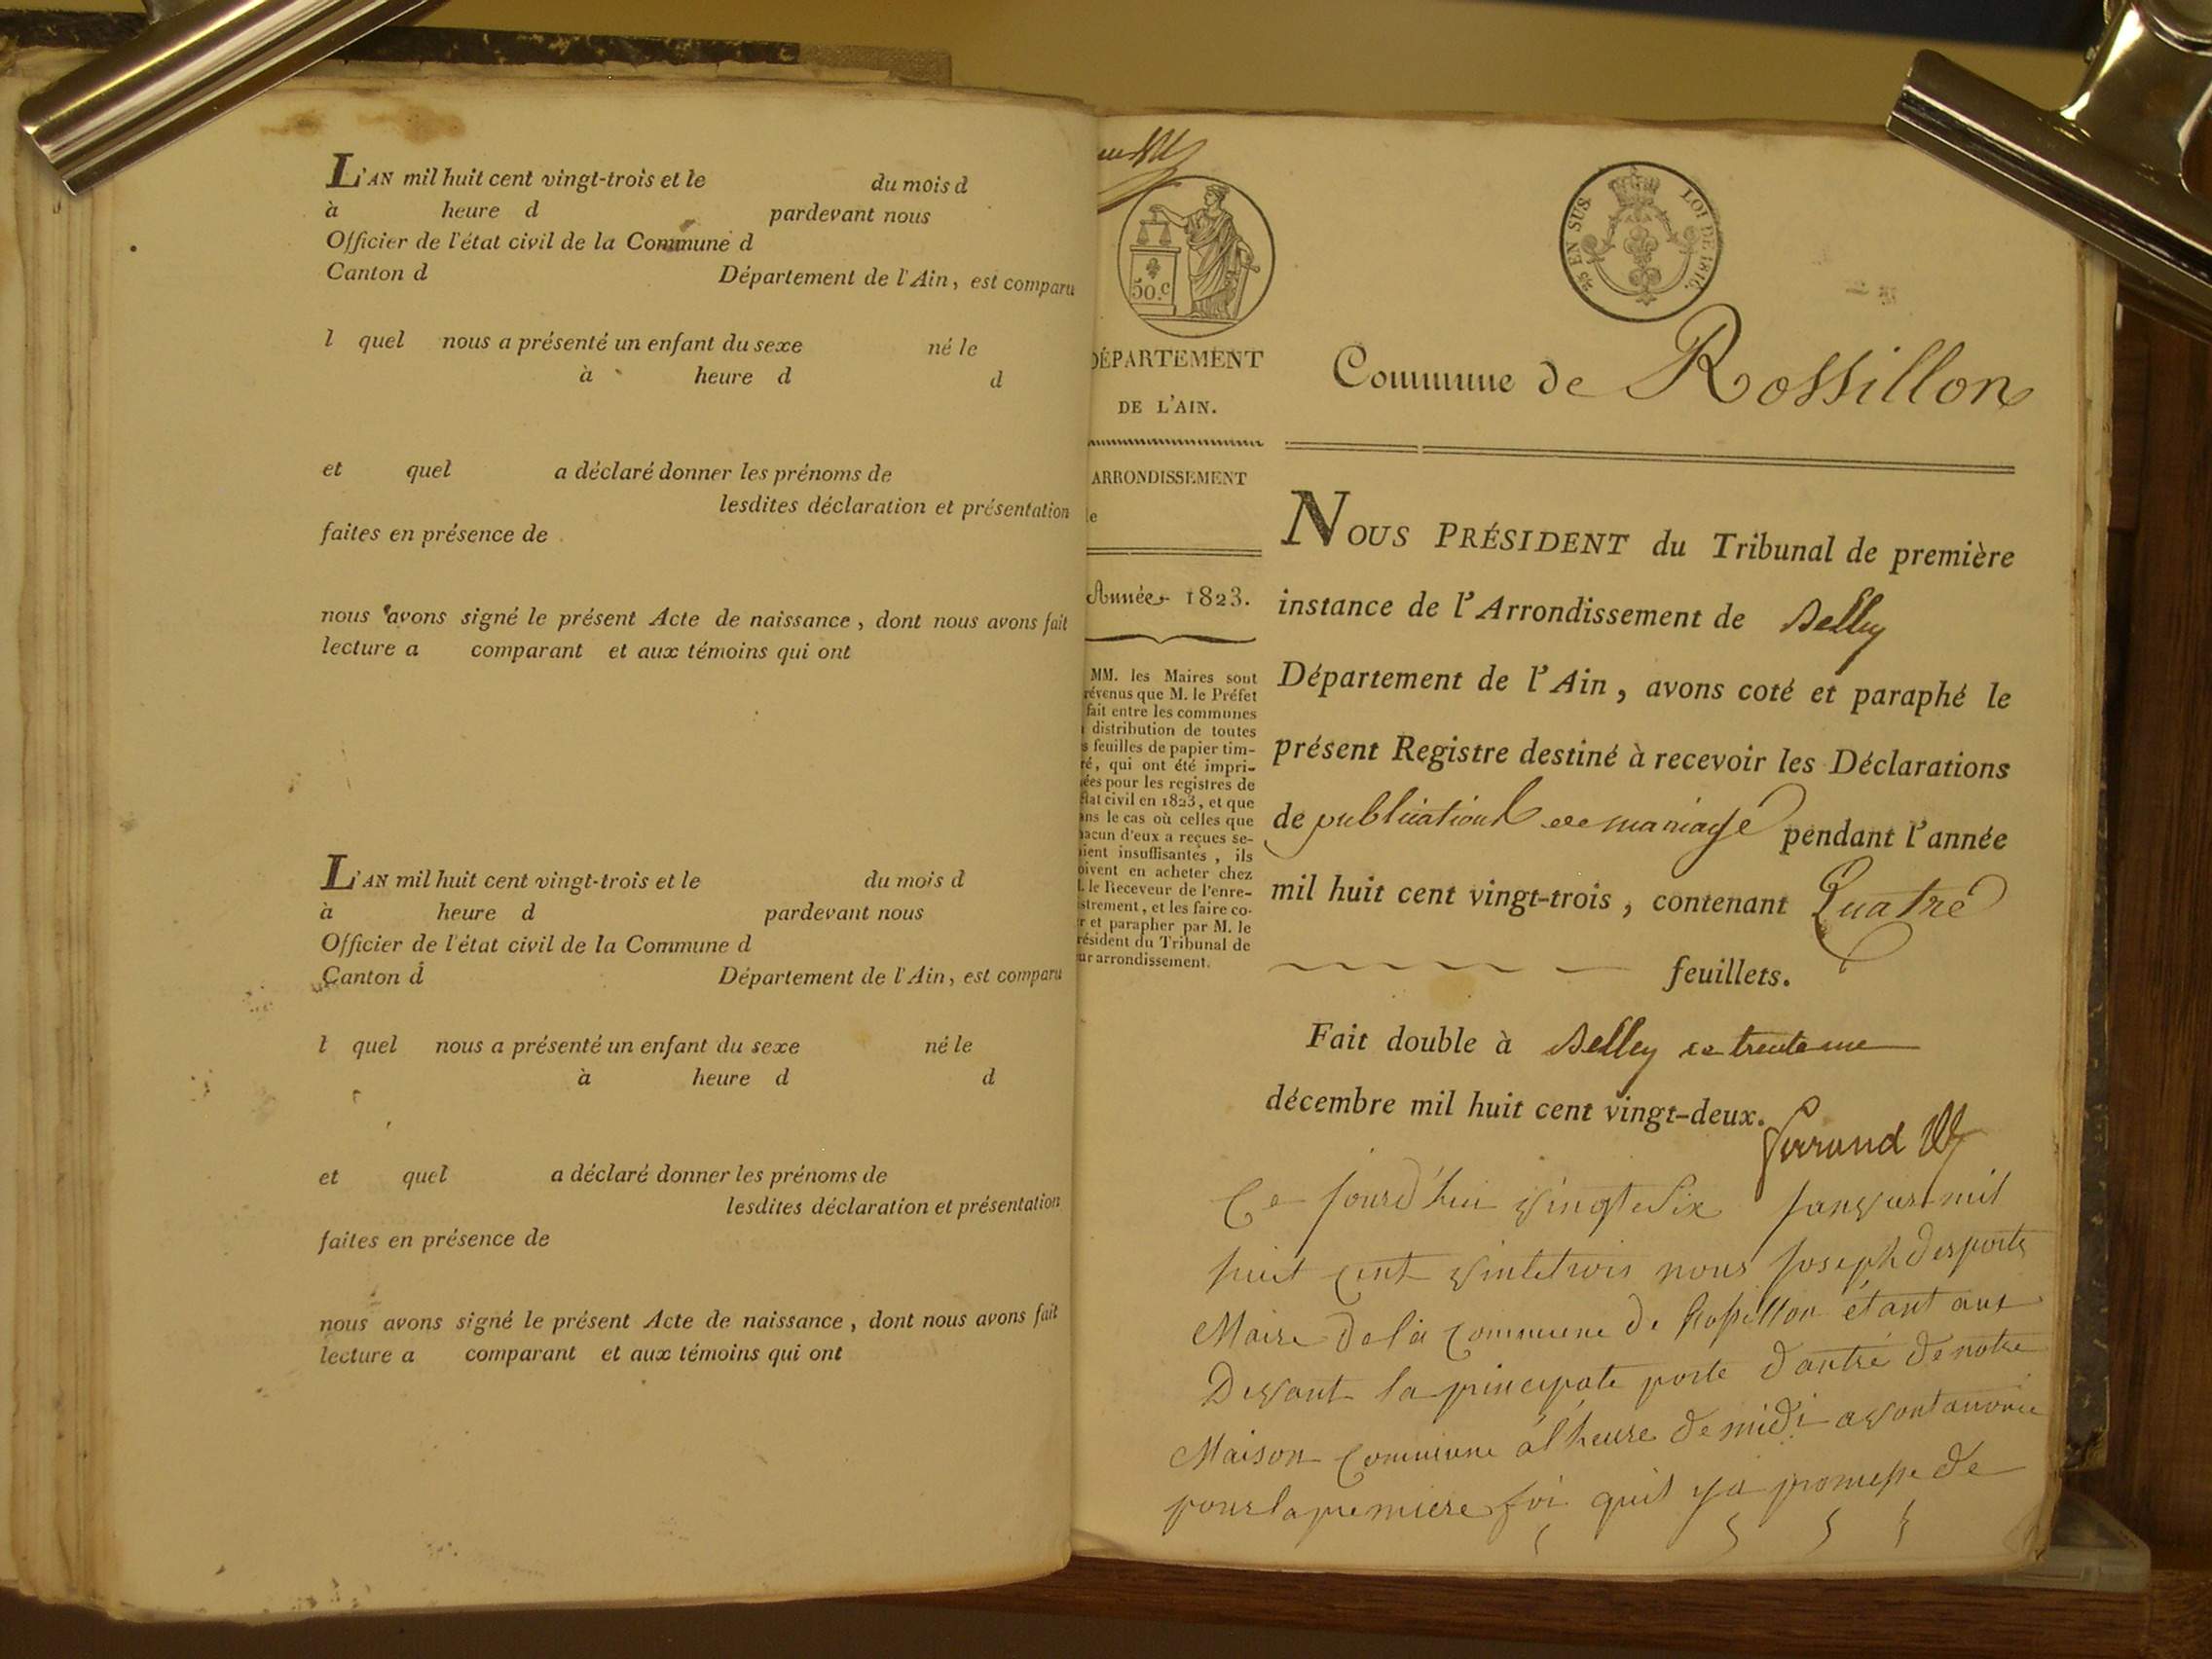 L'AN mil huit cent vingt-trois et le du mois d
à heure d pardevant nous
Officier de l'état civil de la Commune d
Canton d Département de l'Ain, est comparu
l quel nous a présenté un enfant du sexe né le
à heure d d
et quel a déclaré donner les prénoms de
lesdites déclaration et présentation
faites en présence de
nous avons signé le présent Acte de naissance, dont nous avons fait
lecture a comparant et aux témoins qui ont
L'AN mil huit cent vingt-trois et le du mois d
à heure d pardevant nous
Officier de l'état civil de la Commune d
Canton d Département de l'Ain, est comparu
l quel nous a présenté un enfant du sexe né le
à heure d d
et quel a déclaré donner les prénoms de
lesdites déclaration et présentation
faites en présence de
nous avons signé le présent Acte de naissance, dont nous avons fait
lecture a comparant et aux témoins qui ont
50.c
EN SUS LOI DE 1816.
DÉPARTEMENT
DE L'AIN.
ARRONDISSEMENT
e
Année 1823.
MM. les Maires sont
révenus que M. le Préfet
fait entre les communes
distribution de toutes
s feuilles de papier tim-
ré, qui ont été impri-
ées pour les registres de
état civil en 1823, et que
ans le cas où celles que
hacun d'eux a reçues se-
aient insuffisantes, ils
oivent en acheter chez
M. le Receveur de l'enre-
istrement, et les faire co-
er et parapher par M. le
résident du Tribunal de
ur arrondissement.
Commune de Rossillon
NOUS PRÉSIDENT du Tribunal de première
instance de l'Arrondissement de Belley
Département de l'Ain, avons coté et paraphé le
présent Registre destiné à recevoir les Déclarations
de publications de mariage pendant l'année
mil huit cent vingt-trois, contenant Quatre
feuillets.
Fait double à Belley ce trente une
décembre mil huit cent vingt-deux.
Ce jourd'hui vingt e six janvier mil
huit cent vintetrois nous joseph desports
Maire de la Commune de Rossillon étant aux
Devant la principale porte d'antré de notre
Maison Commune a l'heure de midi avont anonce
pour la premiere foi quil y a promesse de